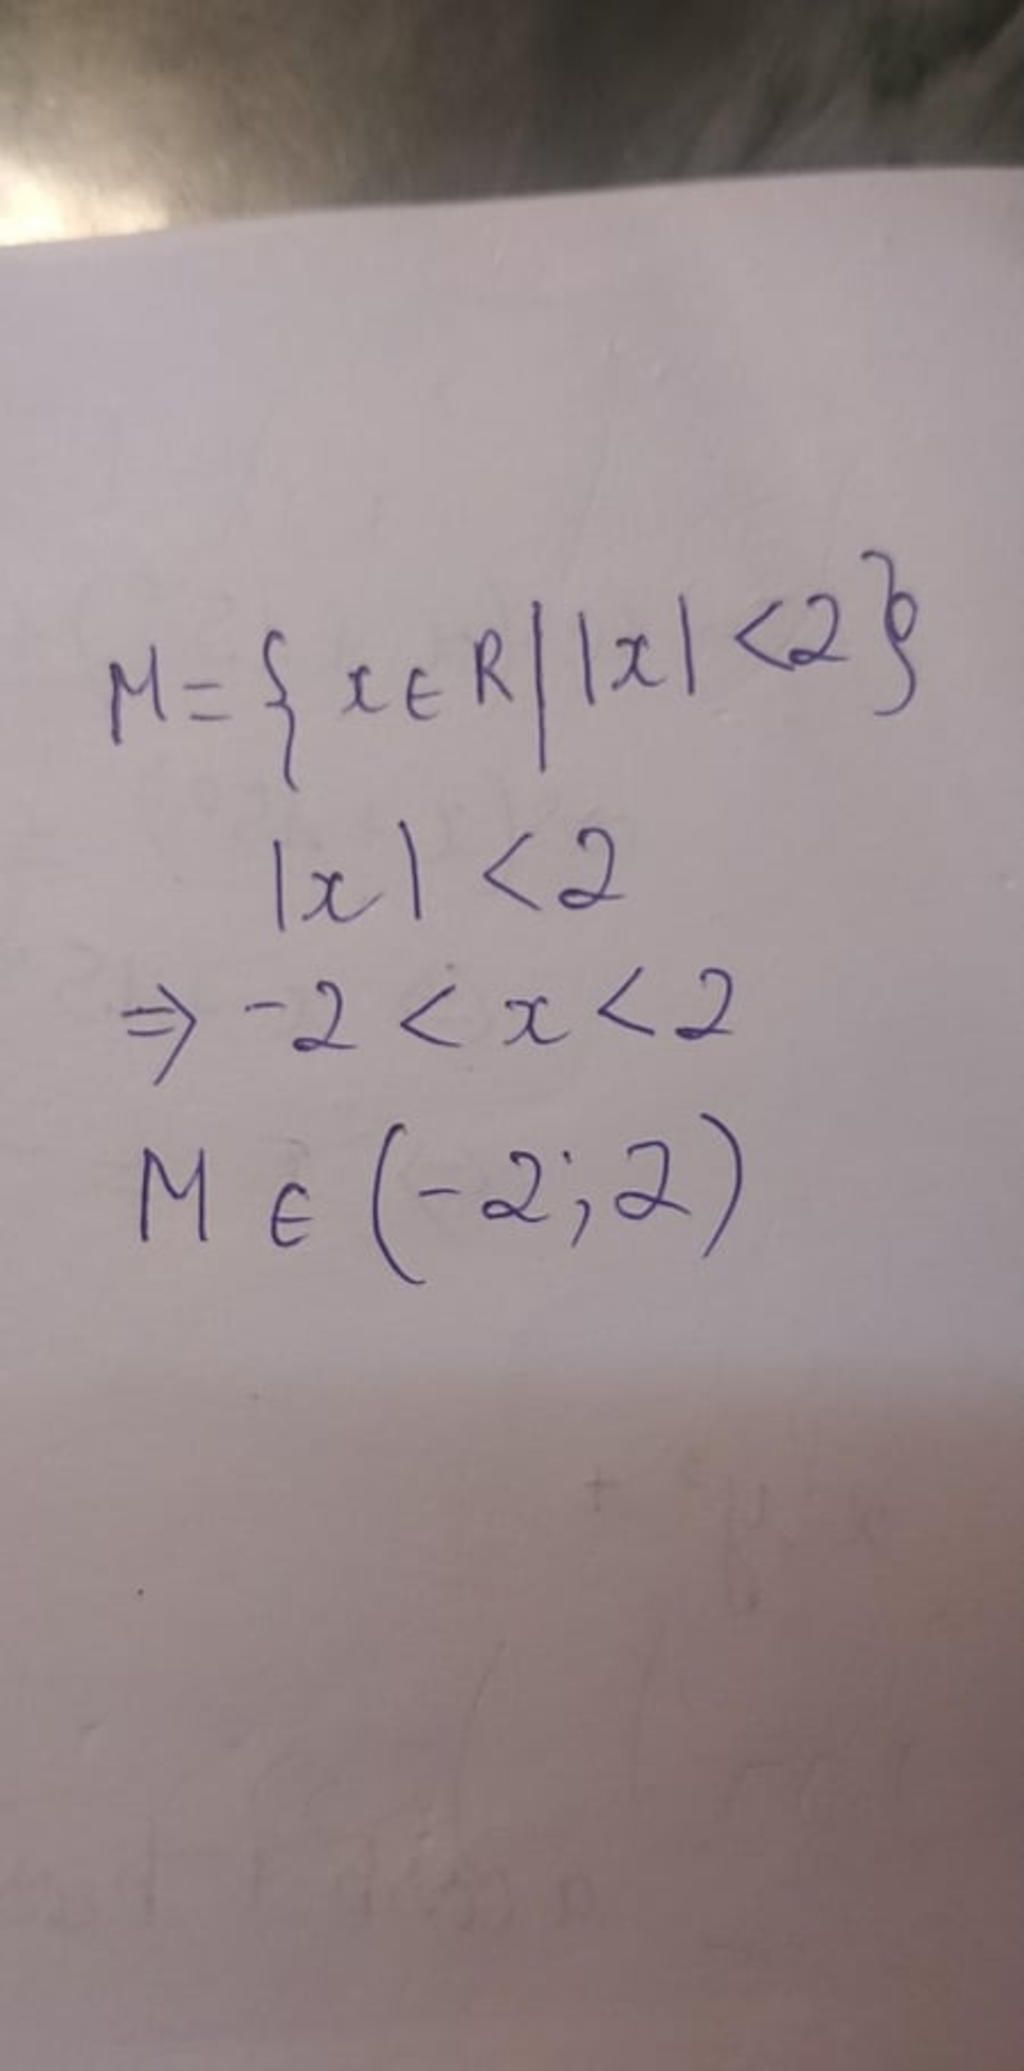 M = { x ∈ R | |x| < 2 }
|x| < 2
⇒ -2 < x < 2
M ∈ (-2; 2)